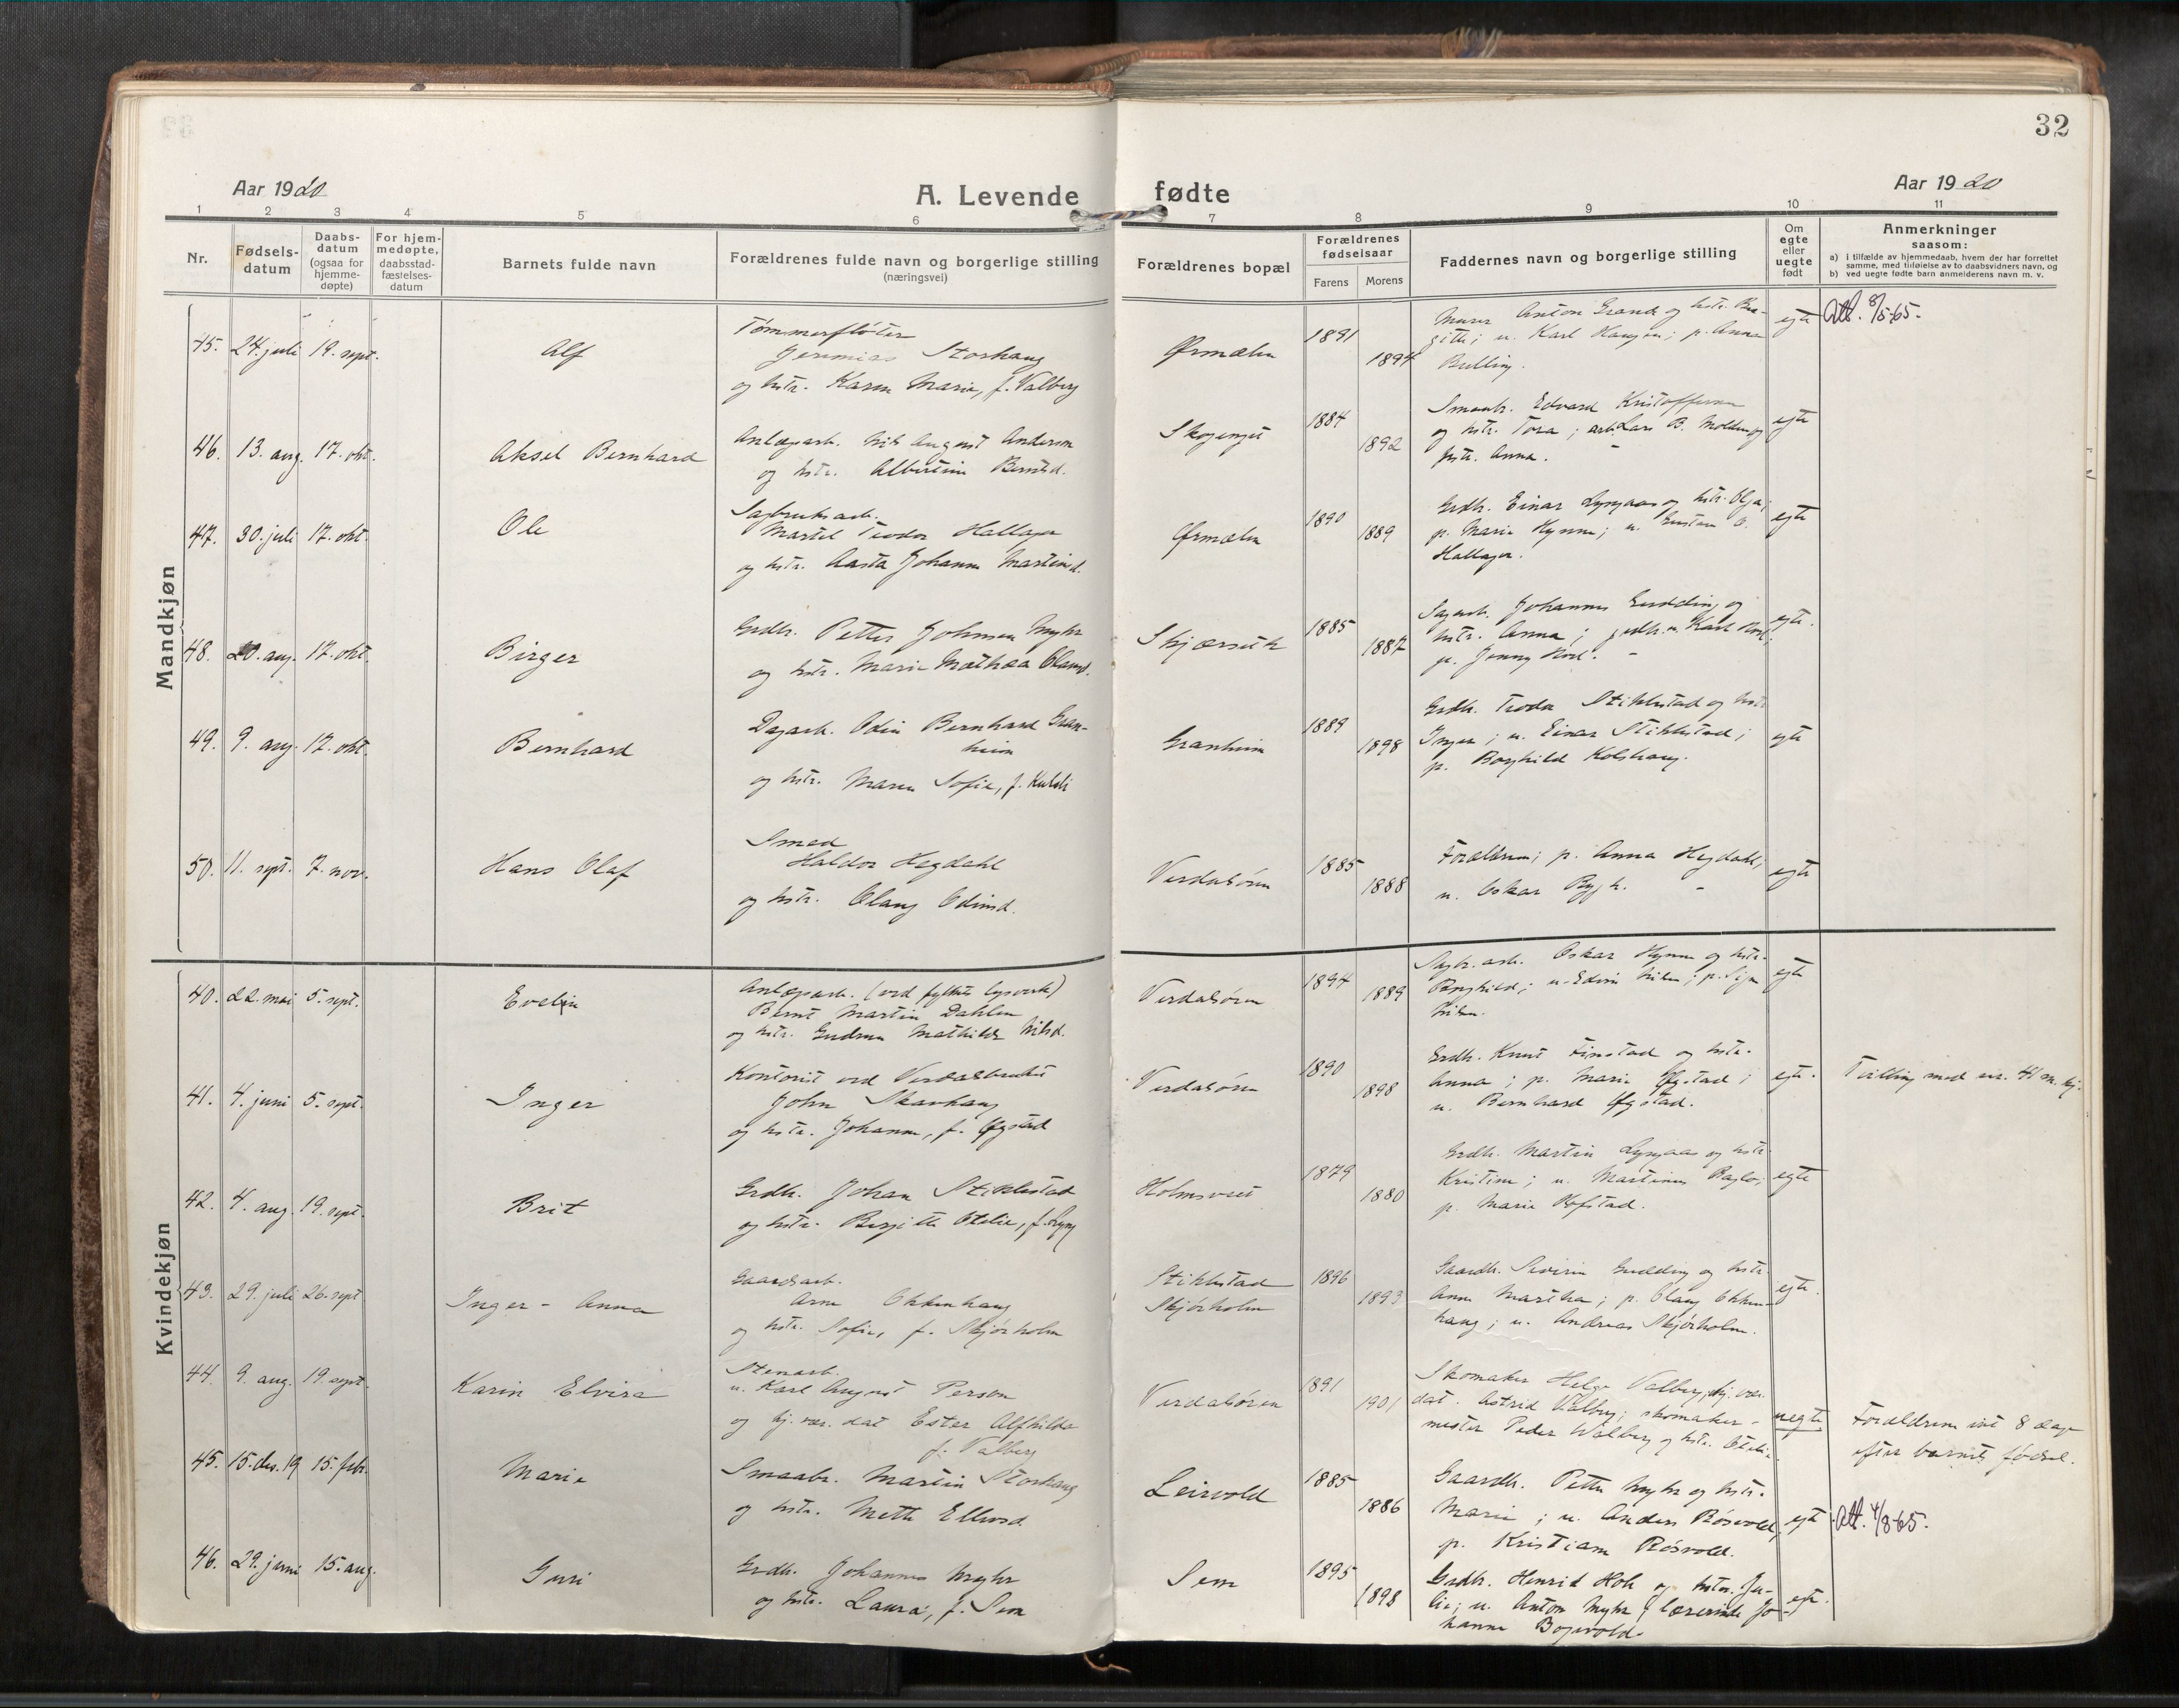 32
Aar 1920
A. Levende fødte
Aar 1920
1 2 3 4 5 6 7 8 9 10 11
Nr.
Fødsels-
datum
Daabs-
datum
(ogsaa for
hjemme-
døpte)
For hjem-
medøpte,
daabsstad-
fæstelses-
datum
Barnets fulde navn
Forældrenes fulde navn og borgerlige stilling
(næringsvei)
Forældrenes bopæl
Forældrenes
fødselsaar
Farens Morens
Faddernes navn og borgerlige stilling
Om
egte
eller
uegte
født
Anmerkninger
saasom:
a) i tilfælde av hjemmedaab, hvem der har forrettet
samme, med tilføielse av to daabsvidners navn, og
b) ved uegte fødte barn anmelderens navn m. v.
Mandkjøn
45. 24. juli 19. sept. Alf
Tømmerfløter
Jeremias Storhaug
og hstr. Karen Marie, f. Valberg
Ørmælen 1891 1894
Murer Anton Grande og hstr. Bir-
gitte; u. Karl Haugen; p. Anna
Bulling.
egte
Att. 8/5-65.
46. 13. aug. 17. okt. Aksel Bernhard
Anlægsarb. Nils August Andersen
og hstr. Albertine Berntsd.
1884 1892
Smaabr. Edvard Kristoffersen
og hstr. Tora; arb. Lars B. Molden og
hstr. Anna.
egte
47. 30. juli 17. okt. Ole
Sagbruksarb.
Martel Teodor Hallager
og hstr. Aasta Johanne Martinsd.
Ørmælen 1890 1889
Grdb. Einar Lyngaas og hstr. Olga;
p. Marie Hynne; u. Gustav O.
Hallager.
egte
48. 20. aug. 17. okt. Birger
Grdb. Petter Johnsen Myhr
og hstr. Marie Mathea Olausd.
1885 1887
Sagarb. Johannes Gudding og
hstr. Anna; grdb. u. Karl
p. Jenny
egte.
49. 9. aug. 17. okt. Bernhard
Dagarb. Odin Bernhard Gran-
heim
og hstr. Maren Sofie, f. Kulsli
Granheim 1889 1898
Grdb. Teodor Stiklestad og hstr.
Inger; u. Einar Stiklestad;
p. Borghild Kolshaug.
egte
50. 11. sept. 7. nov. Hans Olaf
Smed
Haldor Hegdahl
og hstr. Olaug Odinsd.
Verdalsøren 1885 1888
Forældrene; p. Anna Hegdahl;
u. Oskar Rygh.
egte
Kvindekjøn
40. 22. mai 5. sept. Evelin
Anlægsarb. (ved fylkets lysverk)
Bernt Martin Dahlen
og hstr. Gudrun Mathilde Nilsd.
Verdalsøren 1894 1889
Sagbr. arb. Oskar Hynne og hstr.
Borghild; u. Edvin Nilsen; p. Signe
Nilsen.
egte
41. 4. juni 5. sept. Inger
Kontorist ved Verdalsbruket
John Skavhaug
og hstr. Johanne, f. Øgstad
Verdalsøren 1890 1898
Grdb. Knut Finstad og hstr.
Anna; p. Marie Øgstad;
u. Bernhard Øgstad.
egte.
Tvilling med nr. 41 m. kj.
42. 4. aug. 19. sept. Brit
Grdb. Johan Stiklestad
og hstr. Bergitte Otelie, f. Lyng
Holmsveet 1879 1880
Grdb. Martin Lyngaas og hstr.
Kristine; u. Martinus Baglo;
p. Marie Hofstad.
egte
43. 29. juli 26. sept Inger - Anna
Gaardsarb.
Arne Okkenhaug
og hstr. Sofie, f. Skjørholm
Stiklestad
Skjørholm
1896 1893
Gaardb. Severin Gudding og hstr.
Anne Martha; p. Olaug Okken-
haug; u. Andreas Skjørholm.
egte.
44. 9. aug. 19. sept. Karin Elvira
Stenarb.
u. Karl August Person
og hj. vær. dat Ester Alfhilda
f. Valberg
Verdalsøren 1891 1901
Skomaker Helge Valberg; hj. vær.
dat. Astrid Valberg; skomaker-
mester Peder Walberg og hstr. Otelie.
uegte
Forældrene viet 8 dage
efter barnets fødsel.
45. 15. des. 19 15. febr. Marie
Smaabr. Martin Storhaug
og hstr. Mette Ellevsd.
Leirvold 1885 1886
Gaardb. Petter Myhr og hstr.
Marie; u. Anders Røsvold,
p. Kristiane Røsvold.
egte
Att. 4/8-65.
46. 29. juni 15. aug. Guri
Grdb. Johannes Myhr
og hstr. Laura, f. Sem
Sem 1895 1898
Grdb. Henrik Holt og hstr. Ju-
lie; u. Anton Myhr; lærerinde Jo-
hanne Bogvold.
egte.